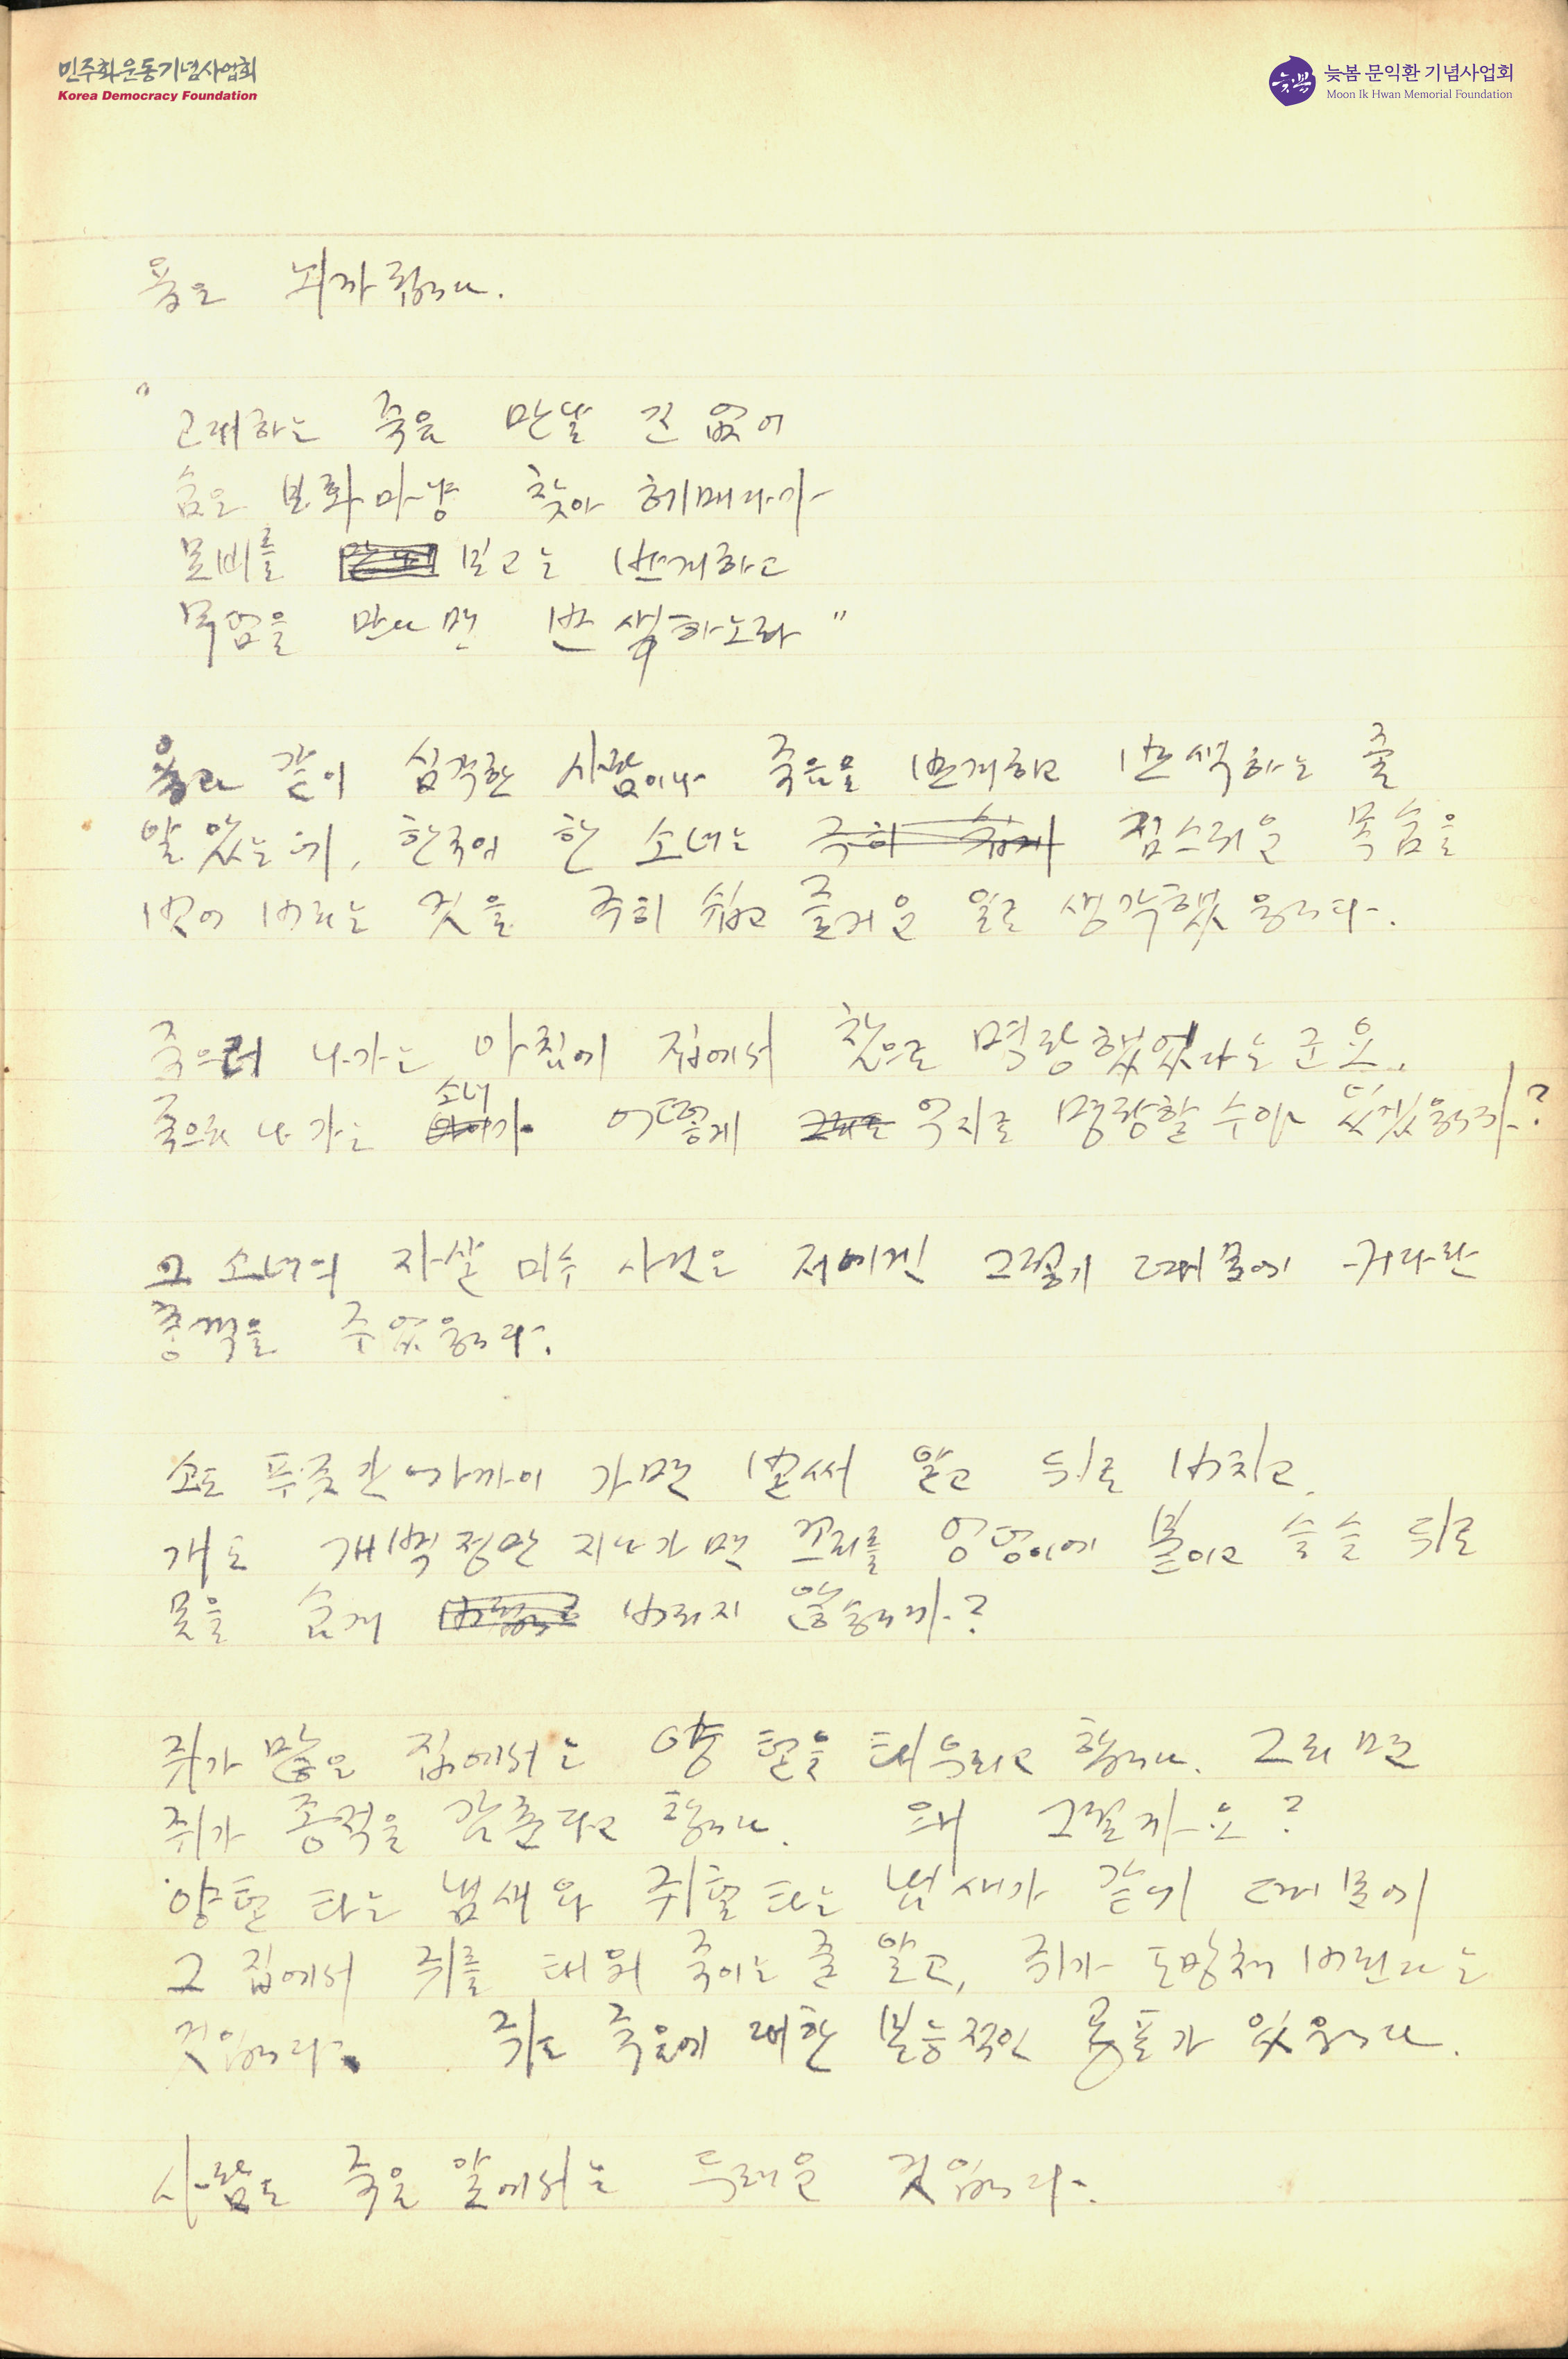 민주화운동기념사업회
Korea Democracy Foundation
늦봄
늦봄 문익환 기념사업회
Moon Ik Hwan Memorial Foundation
욥은 뇌까립니다.
"
고대하는 죽음 만날 길 없어
숨은 보화마냥 찾아 헤매다가
묘비를 보고는 반게하고
무덤을 만나면 반색하노라"
욥과 같이 심각한 사람이나 죽음을 반게하고 반색하는 줄
알았는데, 한국의 한 소녀는 짐스러운 목숨을
벗어 버리는 것을 극히 쉽고 즐거운 일로 생각했읍니다.
죽으러 나가는 아침에 집에서 참으로 명랑했었다는군요.
죽으러 나가는 소녀가 어떻게 억지로 명랑할 수야 있겠읍니까?
그 소녀의 자살 미수 사건은 저에겐 그렇기 때문에 커다란
충격을 주었읍니다.
소도 푸줏간 가까이 가면 벌써 알고 뒤로 버티고,
개도 개백정만 지나가면 꼬리를 엉덩이에 붙이고 슬슬 뒤로
몸을 숨겨 버리지 않습니까?
쥐가 많은 집에서는 양털을 태우라고 합니다. 그러면
쥐가 종적을 감춘다고 합니다. 왜 그럴까요?
양털 타는 냄새와 쥐털 타는 냄새가 같기 때문에
그 집에서 쥐를 태워 죽이는 줄 알고, 쥐가 도망쳐 버린다는
것입니다. 쥐도 죽음에 대한 본능적인 공포가 있읍니다.
사람도 죽음 앞에서는 두려운 것입니다.